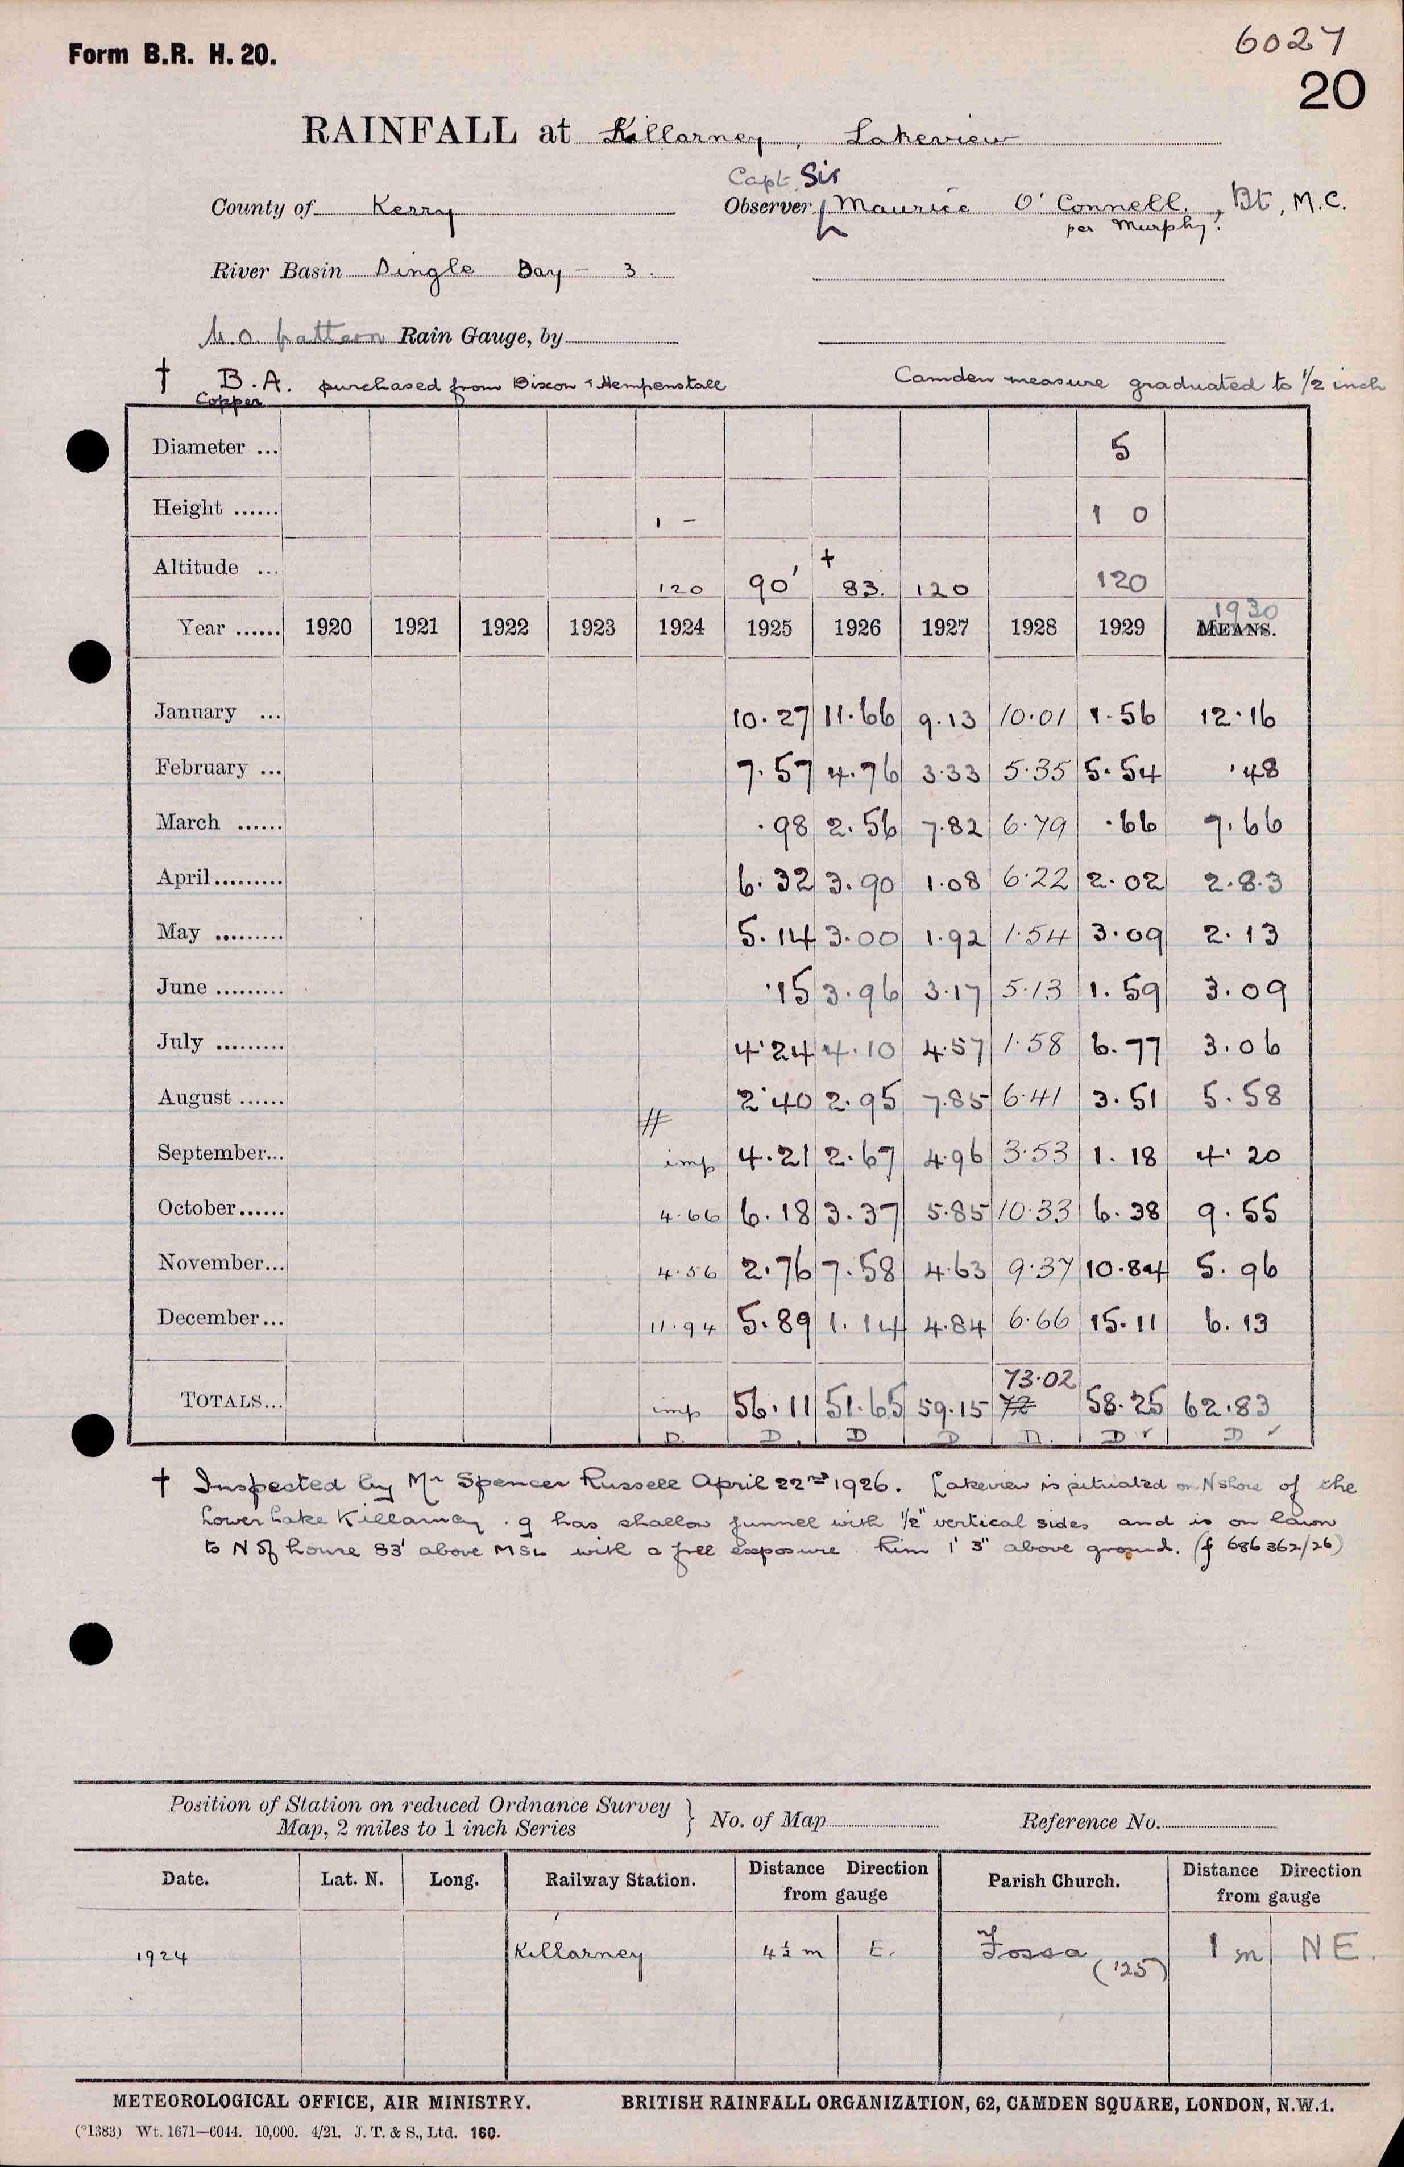 6027
Form B.R. H. 20.
20
RAINFALL at Killarney, Lakeview
Capt. Sir
County of Kerry Observer Maurice O'Connell, Bt, M.C.
per Murphy.
River Basin Dingle Bay - 3.
M.O. pattern Rain Gauge, by
† B.A. purchased from Dixon & Hempenstall Camden measure graduated to 1/2 inch
Copper
Diameter ... 5
Height ...... 1 - 1 0
Altitude ... 120 90' † 83. 120 120
1930
Year ...... 1920 1921 1922 1923 1924 1925 1926 1927 1928 1929 MEANS.
January ... 10.27 11.66 9.13 10.01 1.56 12.16
February ... 7.57 4.76 3.33 5.35 5.54 .48
March ...... .98 2.56 7.82 6.79 .66 7.66
April......... 6.32 3.90 1.08 6.22 2.02 2.83
May ......... 5.14 3.00 1.92 1.54 3.09 2.13
June ......... .15 3.96 3.17 5.13 1.59 3.09
July ......... 4.24 4.10 4.57 1.58 6.77 3.06
August ...... # 2.40 2.95 7.85 6.41 3.51 5.58
September... imp 4.21 2.67 4.96 3.53 1.18 4.20
October...... 4.66 6.18 3.37 5.85 10.33 6.38 9.55
November... 4.56 2.76 7.58 4.63 9.37 10.84 5.96
December... 11.94 5.89 1.14 4.84 6.66 15.11 6.13
73.02
TOTALS... imp 56.11 51.65 59.15 72 58.25 62.83
D. D. D D D. D ✓ D ✓
† Inspected by Mr Spencer Russell April 22nd 1926. Lakeview is situated on N shore of the
Lower Lake Killarney. g has shallow funnel with 1/2" vertical sides and is on lawn
to N of house 83' above MSL with a free exposure. Rim 1' 3" above ground. (f 686362/26)
Position of Station on reduced Ordnance Survey
Map, 2 miles to 1 inch Series } No. of Map Reference No.
Date. Lat. N. Long. Railway Station. Distance Direction from gauge Parish Church. Distance Direction from gauge
1924 Killarney 4½ m E. Fossa ('25) 1 m NE.
METEOROLOGICAL OFFICE, AIR MINISTRY. BRITISH RAINFALL ORGANIZATION, 62, CAMDEN SQUARE, LONDON, N.W.1.
(*1383) Wt. 1671—6044. 10,000. 4/21. J. T. & S., Ltd. 160.